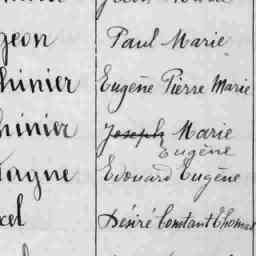 geon Paul Marie
hinier Eugène Pierre Marie
hinier Joseph Marie
Eugène
Edouard Eugène
Désiré Constant Thomas